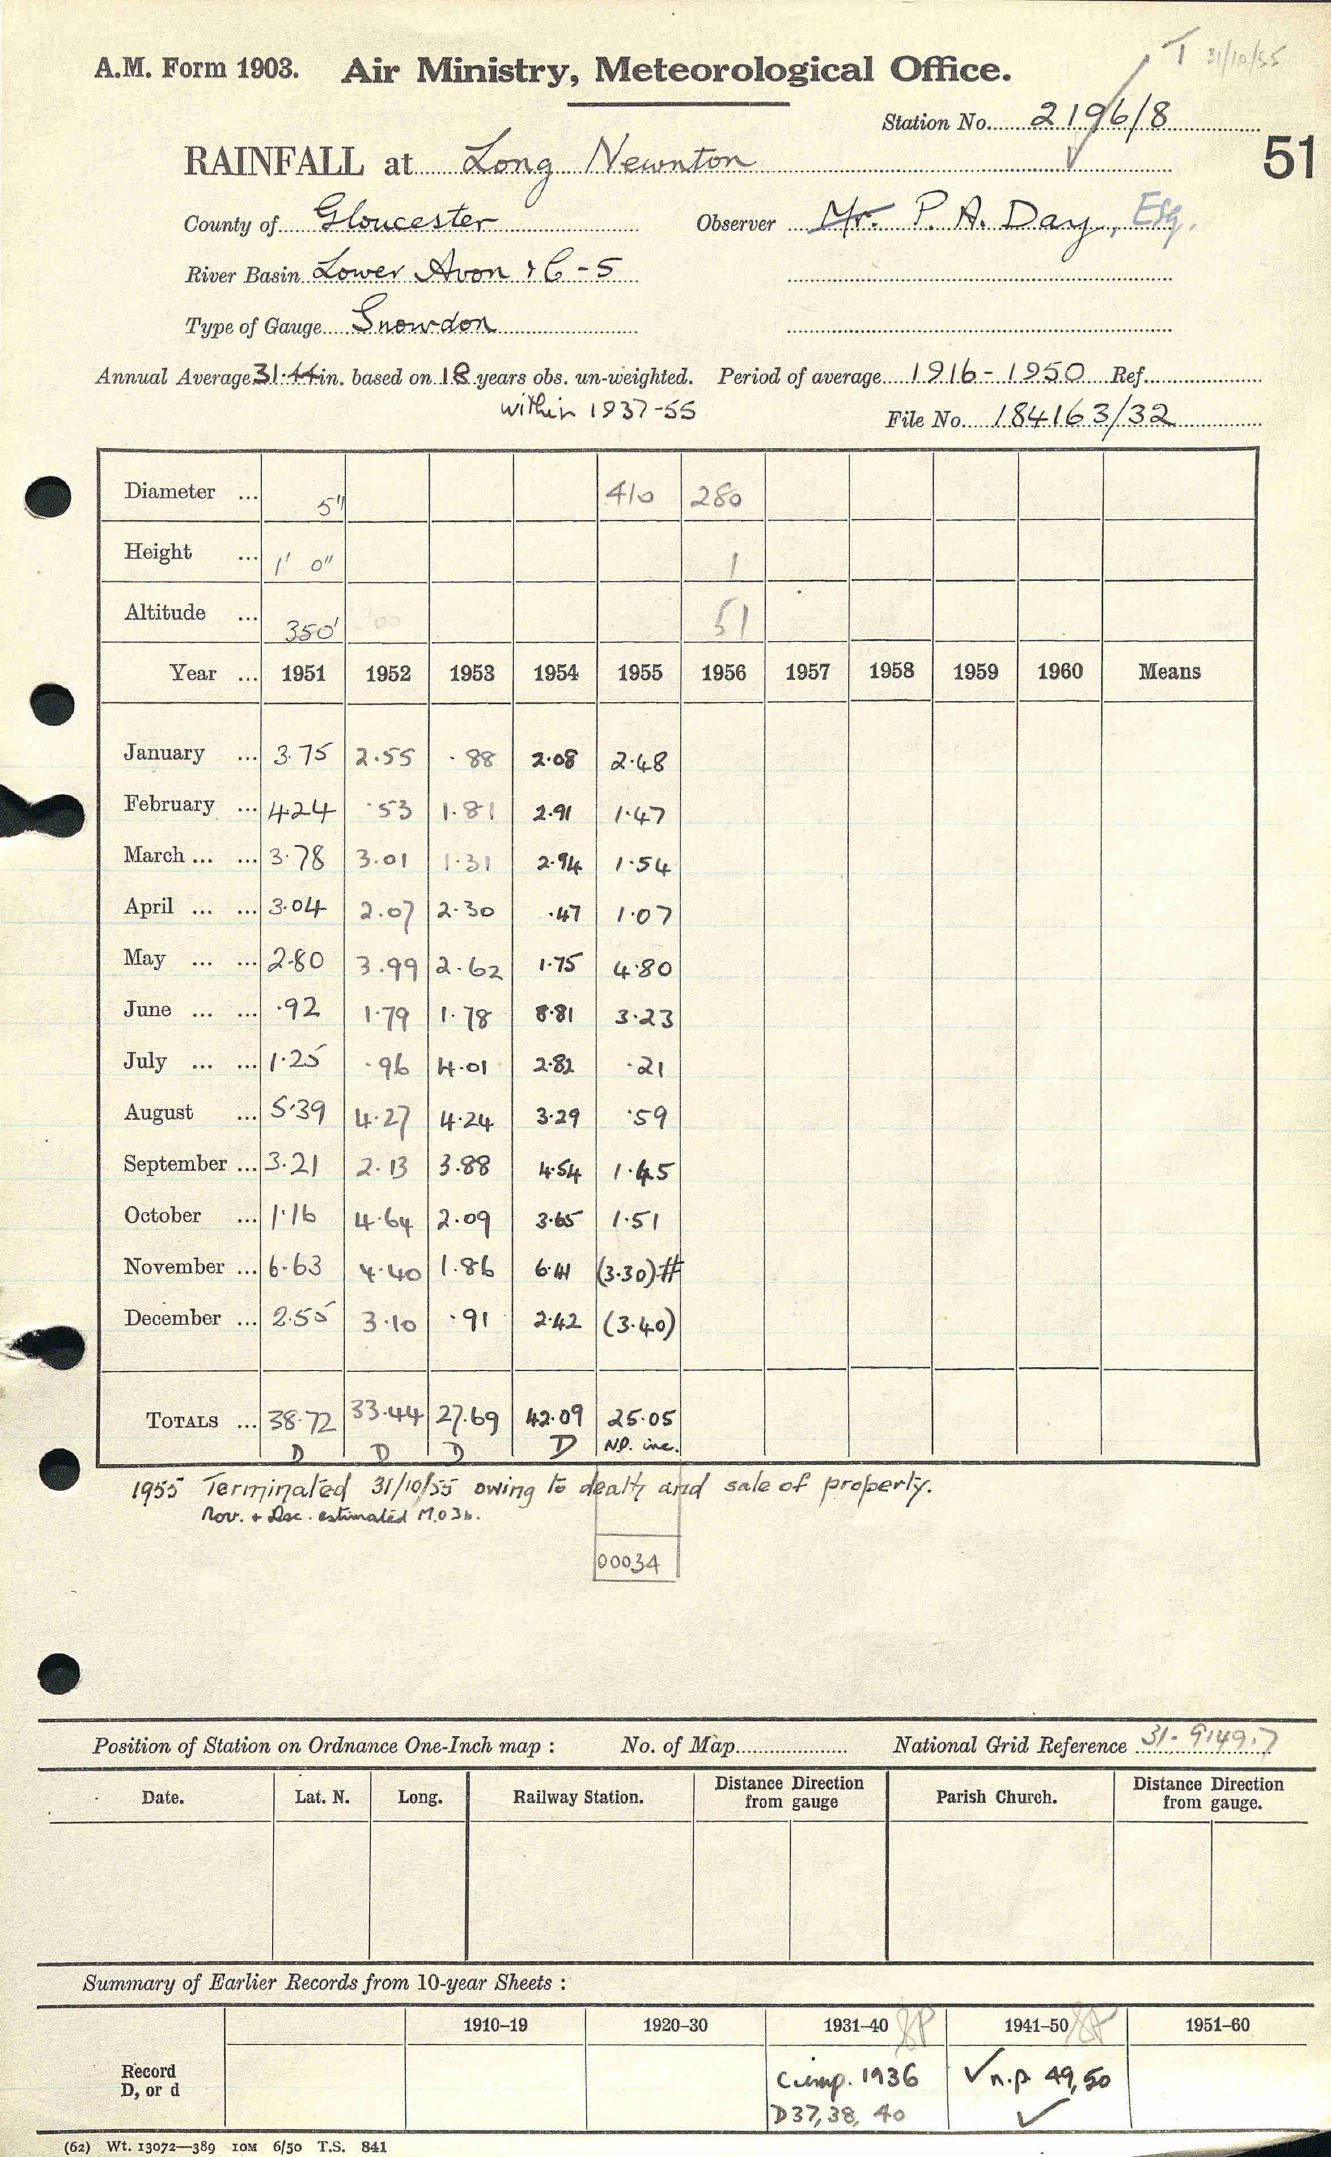 T 31/10/55
A.M. Form 1903. Air Ministry, Meteorological Office.
Station No. 2196/8
51
RAINFALL at Long Newnton
County of Gloucester Observer Mr. P. A. Day, Esq.
River Basin Lower Avon & C-5
Type of Gauge Snowdon
Annual Average 31.44 in. based on 18 years obs. un-weighted. Period of average 1916-1950 Ref.
within 1937-55 File No. 184163/32
Diameter ... 5" 410 280
Height ... 1' 0" 1
Altitude ... 350' 51
Year ... 1951 1952 1953 1954 1955 1956 1957 1958 1959 1960 Means
January ... 3.75 2.55 .88 2.08 2.48
February ... 4.24 .53 1.81 2.91 1.47
March ... ... 3.78 3.01 1.31 2.94 1.54
April ... ... 3.04 2.07 2.30 .47 1.07
May ... ... 2.80 3.99 2.62 1.75 4.80
June ... ... .92 1.79 1.78 8.81 3.23
July ... ... 1.25 .96 4.01 2.82 .21
August ... 5.39 4.27 4.24 3.29 .59
September ... 3.21 2.13 3.88 4.54 1.45
October ... 1.16 4.64 2.09 3.65 1.51
November ... 6.63 4.40 1.86 6.41 (3.30)#
December ... 2.55 3.10 .91 2.42 (3.40)
TOTALS ... 38.72 33.44 27.69 42.09 25.05
D D D D ND. inc.
1955 Terminated 31/10/55 owing to death and sale of property.
Nov. + Dec. estimated M.O3b.
00034
Position of Station on Ordnance One-Inch map : No. of Map National Grid Reference 31-9149.7
Date. Lat. N. Long. Railway Station. Distance Direction from gauge Parish Church. Distance Direction from gauge.
Summary of Earlier Records from 10-year Sheets :
1910–19 1920–30 1931–40 1941–50 1951–60
Record D, or d
Cimp. 1936 ✓ n.p. 49,50
D37,38, 40 ✓
(62) Wt. 13072—389 10M 6/50 T.S. 841